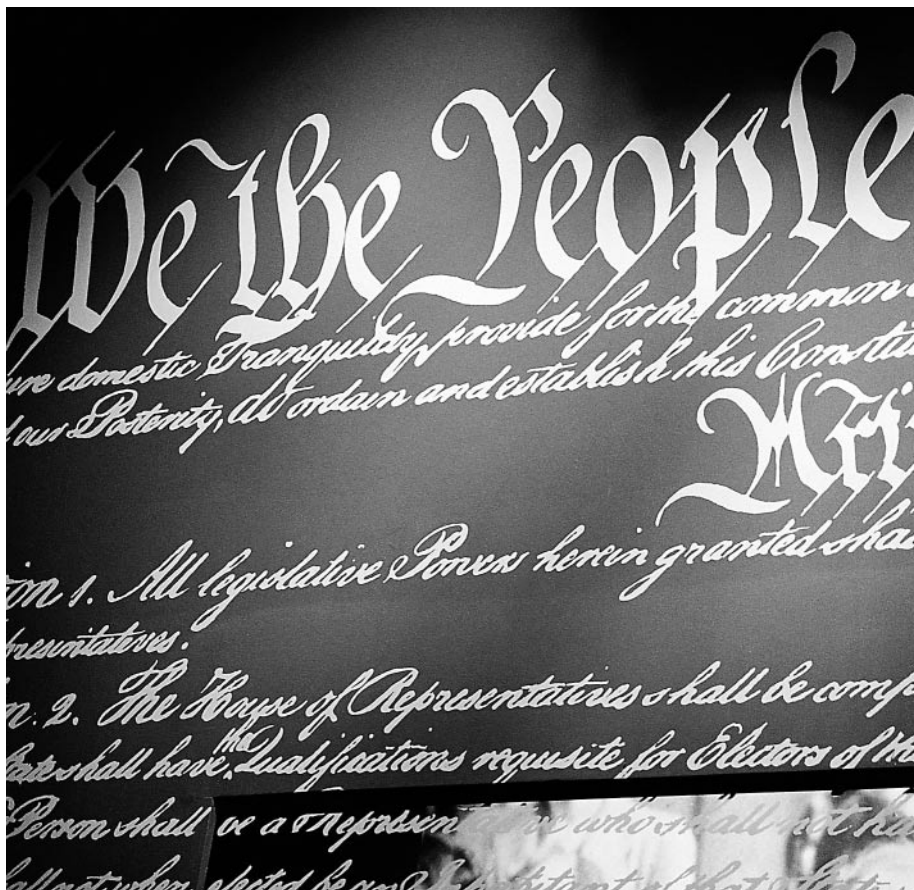 We the People
ure domestic Tranquility, provide for the common
our Posterity, do ordain and establish this Constit
Arti
ion 1. All legislative Powers herein granted shal
presentatives.
n. 2. The House of Representatives shall be comp
State shall have the Qualifications requisite for Electors of th
Person shall be a Representative who shall not ha
all not when elected be an Inhabitant of that